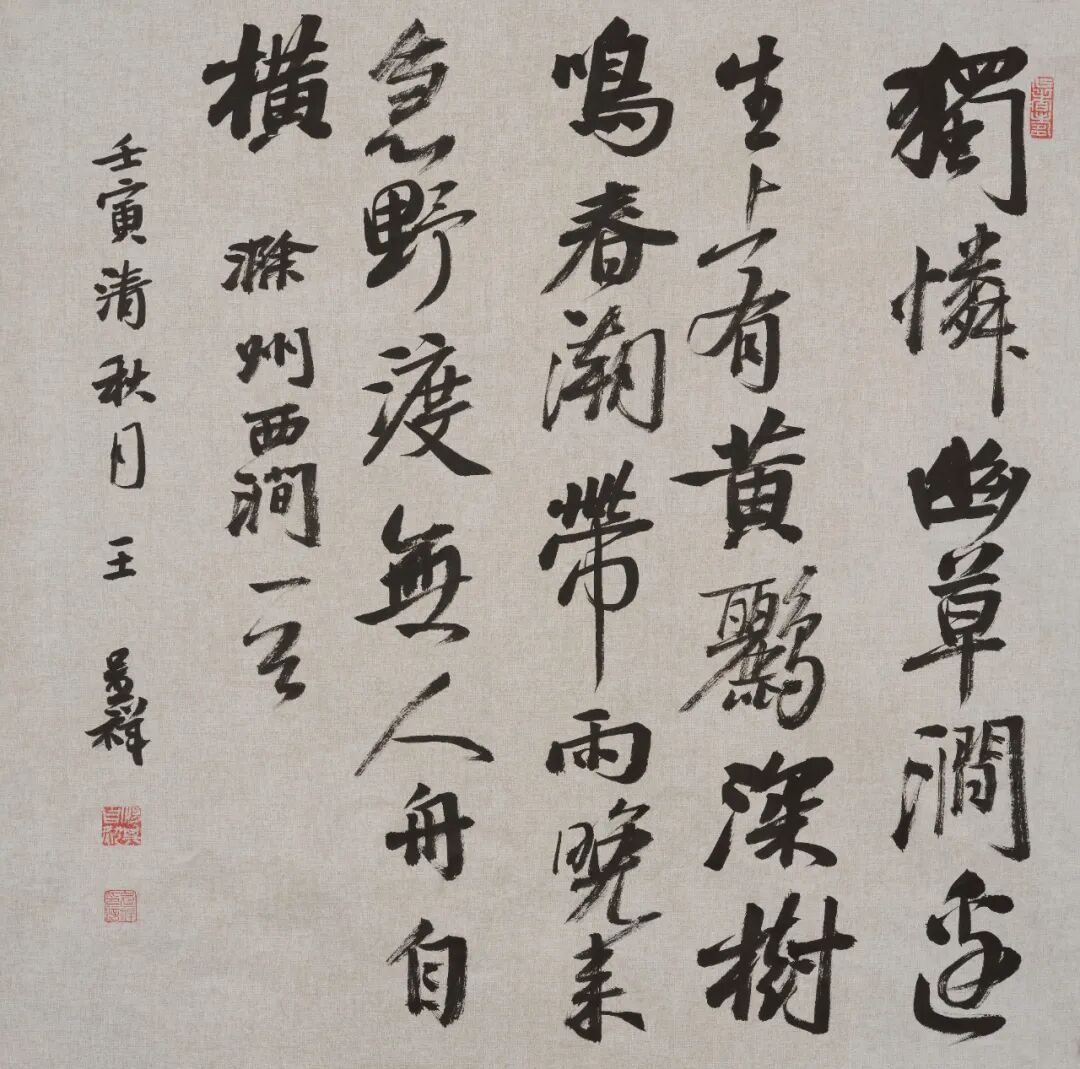 獨憐幽草澗邊
生上有黄鸝深樹
鳴春潮帶雨晚来
急野渡無人舟自
横 滁州西澗一首
壬寅清秋月 王 祥